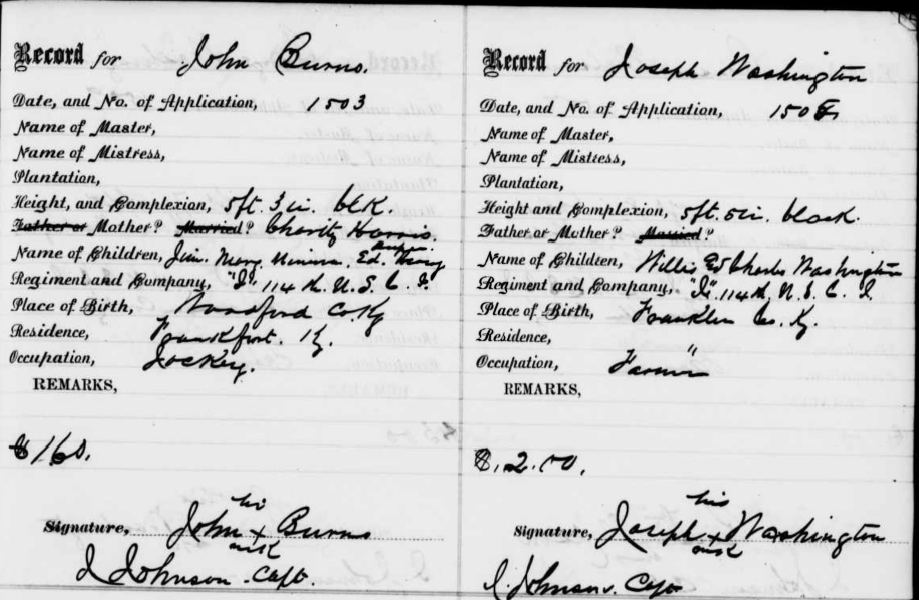 Record for John Burns.
Date, and No. of Application, 1503
Name of Master,
Name of Mistress,
Plantation,
Height, and Complexion, 5ft. 3 in. blk.
Father or Mother? Married? Charity Harris.
Name of Children, Jim. Mary. Ed.
Regiment and Company, "I", 114th. U.S.C.I.
Place of Birth, Woodford Co. Ky
Residence, Frankfort. Ky.
Occupation, Jockey.
REMARKS,
$160.
his
Signature, John x Burns
mark
I Johnson. Capt.
Record for Joseph Washington
Date, and No. of Application,
Name of Master,
Name of Mistress,
Plantation,
Height and Complexion, 5ft. 5in. black.
Father or Mother? Married?
Name of Children, Willis Ed Charles Washington
Regiment and Company, "I" 114th, U.S.C.I.
Place of Birth, Franklin Co. Ky.
Residence, "
Occupation, Farmer
REMARKS,
his
Signature, Joseph x Washington
mark
I. Johnson. Capt